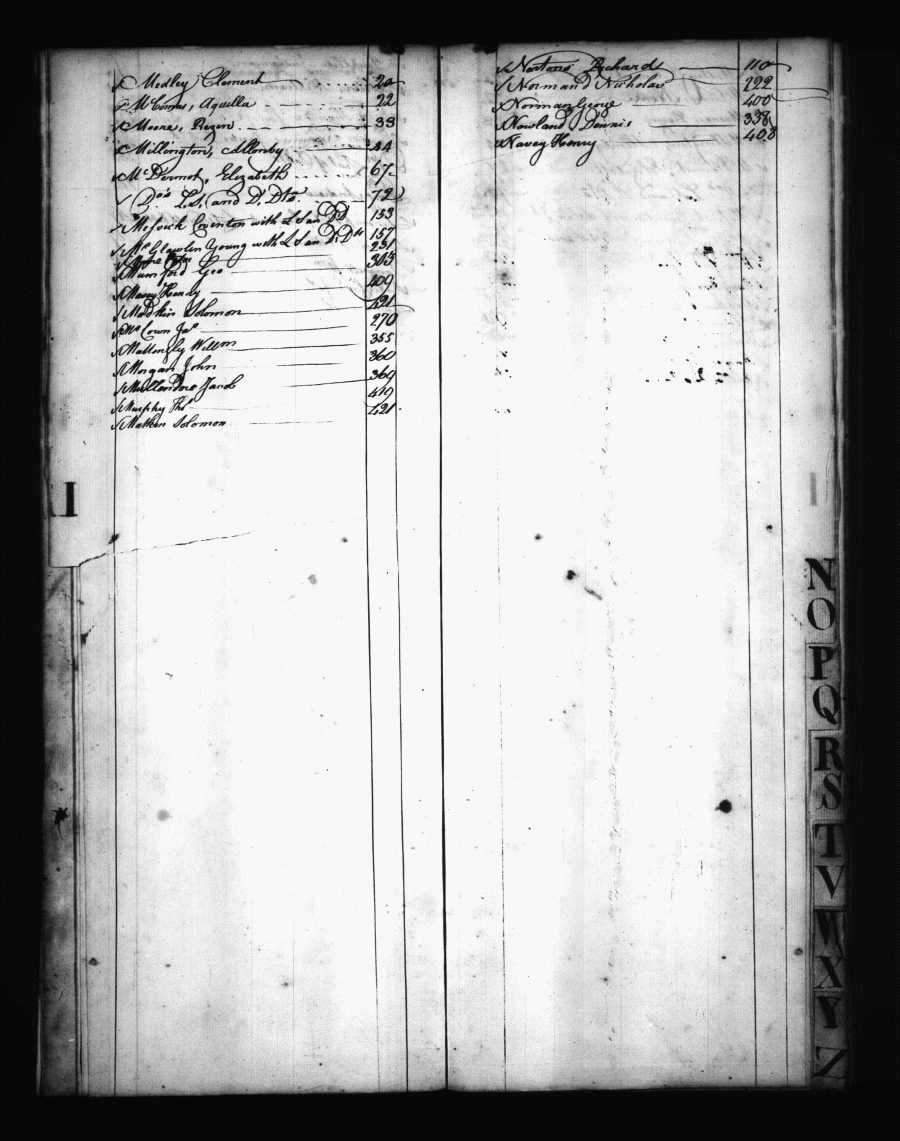 Medley Clement 20
McComas, Aquilla 22
Moore, Rezin 33
Millington, Allonby 44
McDermot, Elizabeth 67
Do's L.S. and D. Dts. 72
Mesick Coventon with L San Dts 153
McGlawlin Young with L San D. Dts 157
231
Mumford Geo 345
Maxey Henry 409
Madkin Solomon 421
McCown Jas 270
Mattongly Willm 355
Morgan John 360
Mullendore Jacob 369
Murphy Thos 419
Matkin Solomon 421
Nortons Richard 110
Normand Nicholas 222
Norman George 400
Nowland Dennis 338
Navey Henry 408
N
O
P
Q
R
S
T
V
W
X
Y
Z